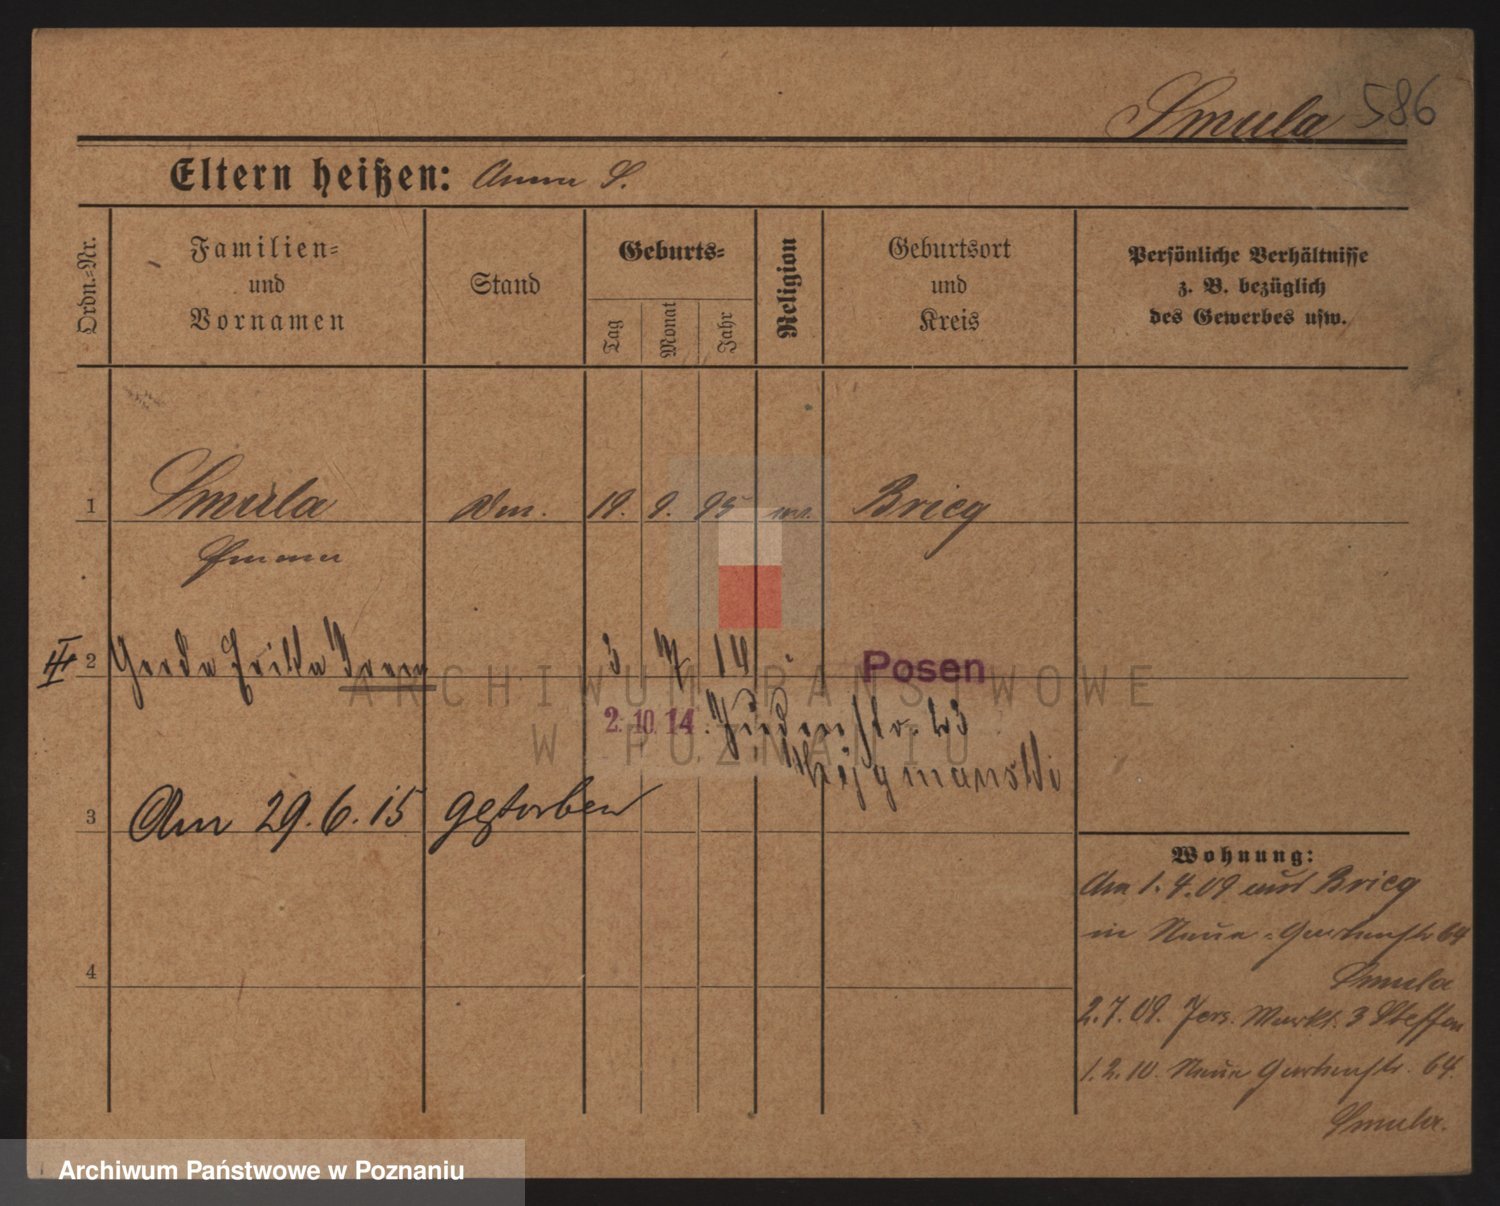 Smula 586
Eltern heißen: Anna S.
Ordn.-Nr.
Familien-
und
Vornamen
Stand
Geburts-
Tag
Monat
Jahr
Religion
Geburtsort
und
Kreis
Persönliche Verhältnisse
z. B. bezüglich
des Gewerbes usw.
1 Smula 19. 9. 95 Brieg
Emma
II 2 Gerda Erika Irene 3 7 14 Posen
2. 10. 14. Judenstr. 23
3 Am 29.6.15 gestorben
4
Wohnung:
Am 1.4.09 aus Brieg
in Neue-Gartenstr 64
Smula
2.7.09. Jers. Markt. 3 Steffen
1.2.10. Neue Gartenstr. 64.
Smula.
ARCHIWUM PAŃSTWOWE
W POZNANIU
Archiwum Państwowe w Poznaniu